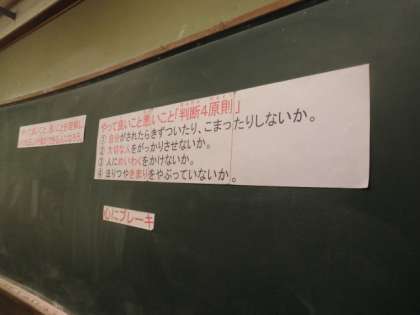 やって良いこと、悪いことを理解し
やって良いこと悪いこと「判断4原則」
① 自分がされたらきずついたり、こまったりしないか。
② 大切な人をがっかりさせないか。
③ 人にめいわくをかけないか。
④ ほりつやきまりをやぶっていないか。
心にブレーキ